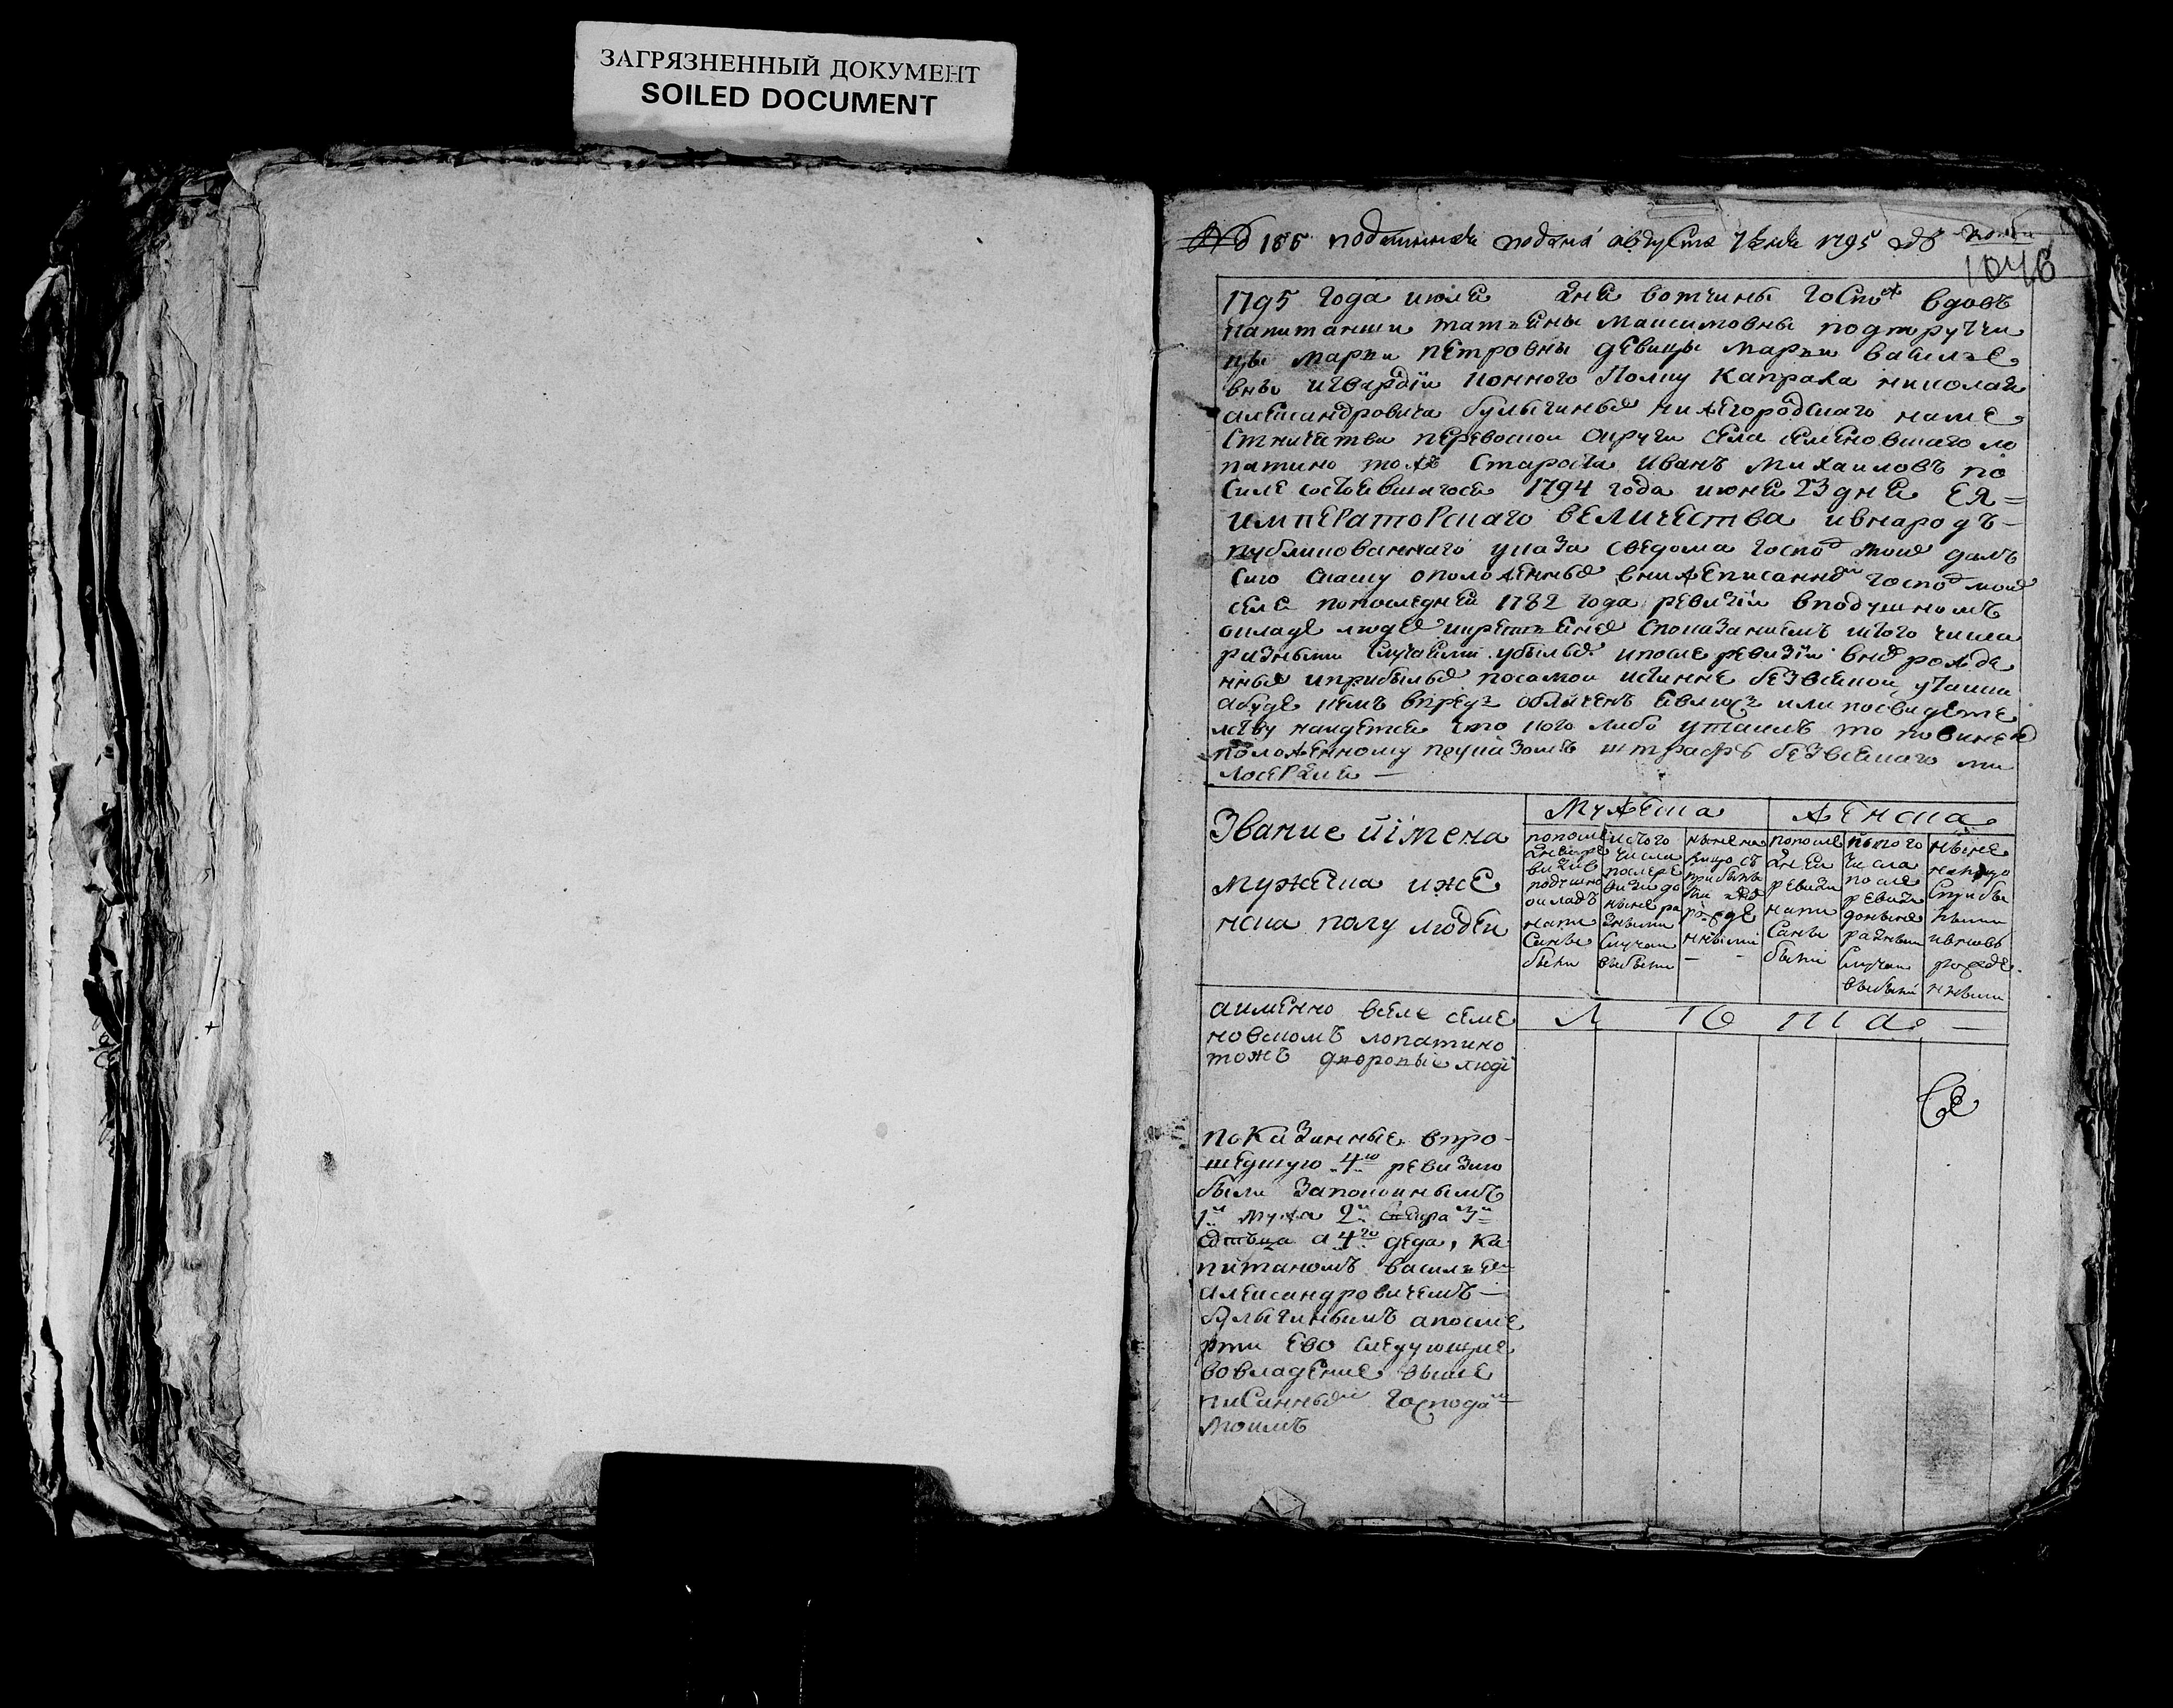 ЗАГРЯЗНЕННЫЙ ДОКУМЕНТ
SOILED DOCUMENT
186 подлинная подана августа 7 дня 1795
1046
1795 года июля дня вотчины госпо^х вдовъ
капитанши татьяны максимовны подпоручи
цы марьи петровны девицы марьи василье
вны игвардiи конного полку капрала николая
александровича булыгиныхъ нижегородскаго наме
стничества перевоской округи села семеновскаго ло
патино тожъ староста иванъ михаиловъ по
силе состоевшагося 1794 года июня 23 дня ея=
императорскаго величества ивнародъ-
публикованнаго указа сведома госпо^д моих далъ
сию скаску оположенных внижеписанно^м госпо^д моих
селе попоследней 1782 года ревизiи вподушномъ
окладе людех икрестьянех споказаниемъ изтого числа
разными случаями убылых ипосле ревизiи вно^в рожде
нных иприбылых посамой истинне безвсякой утаики
абуде кемъ впредъ обличенъ явлюсъ или посвидете
лству найдетса что кого либо утаилъ то повинен
положенному поуказомъ штрафъ безвсякаго ми
лосердия —
Звание иiмена
мужеска иже
нска полу людей
Мужеска
Женска
попосле
дней ре
визiи в
подушно
окладъ
напи
саны
были
изтого
числа
после ре
визи до
ныне ра
зными
случаи
выбыли
ныне на
лицо съ
прибылы
ми
рожде
нными
попосле
дней
ревизи
напи
саны
были
изтого
числа
после
ревизи
доныне
разными
случаи
выбыли
ныне
налицо
сприбы
лыми
ивновь
рожде
нными
аименно вселе семе
новскомъ лопатино
тожъ дворовые людi
Л ѣ т а —
показанные впро-
шедшую 4^ю ревизию
были запокойнымъ
1^й мужа 2^й свекра 3^й
отьца а 4^го деда, ка
питаномъ васильем
александровичемъ —
булыгинымъ апосме
рти ево следующие
вовладение выше
писанным господа^м
моимъ